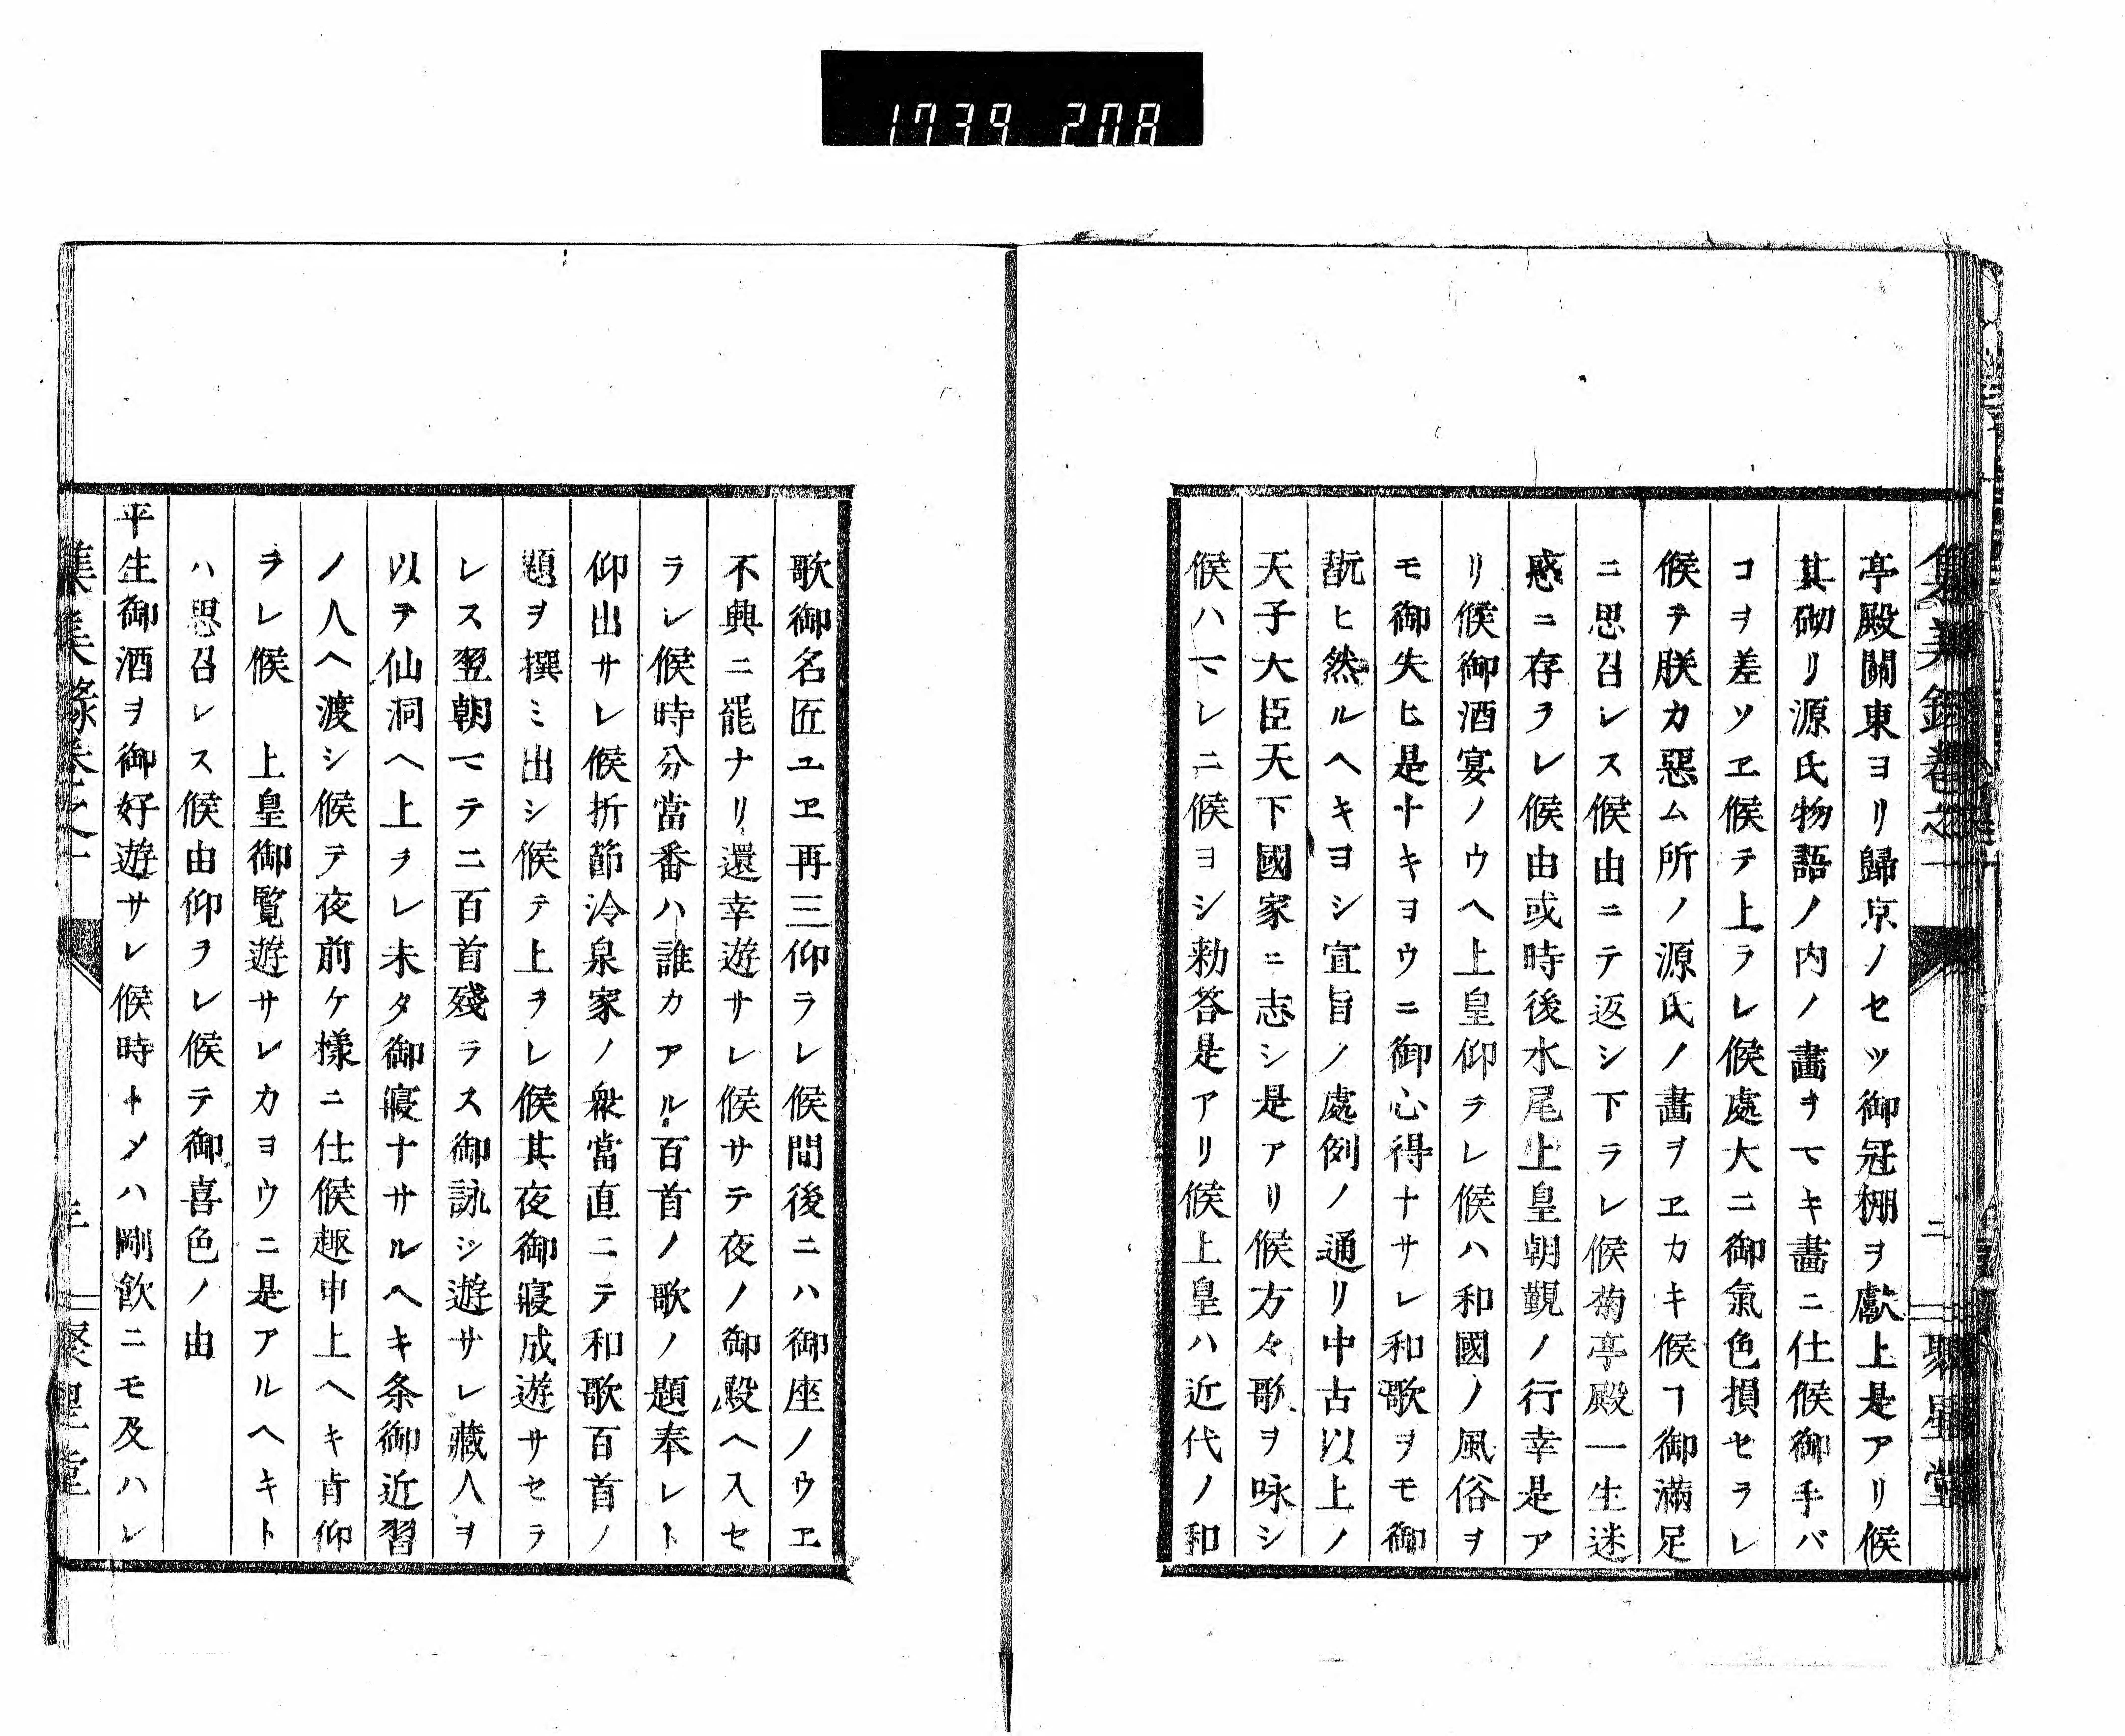 1739 208
亭殿關東ヨリ歸京ノセツ御冠棚ヲ獻上是アリ候
其砌リ源氏物語ノ内ノ畵ヲマキ畵ニ仕候御手バ
コヲ差ソヱ候テ上ラレ候處大ニ御氣色損セラレ
候テ朕カ惡ム所ノ源氏ノ畵ヲヱカキ候ヿ御滿足
ニ思召レス候由ニテ返シ下ラレ候菊亭殿一生迷
惑ニ存ラレ候由或時後水尾上皇朝觀ノ行幸是ア
リ候御酒宴ノウヘ上皇仰ラレ候ハ和國ノ風俗ヲ
モ御失ヒ是ナキヨウニ御心得ナサレ和歌ヲモ御
翫ヒ然ルヘキヨシ宣旨ノ處例ノ通リ中古以上ノ
天子大臣天下國家ニ志シ是アリ候方々歌ヲ咏シ
候ハマレニ候ヨシ勅答是アリ候上皇ハ近代ノ和
歌御名匠ユヱ再三仰ラレ候間後ニハ御座ノウヱ
不興ニ罷ナリ還幸遊サレ候サテ夜ノ御殿ヘ入セ
ラレ候時分當番ハ誰カアル百首ノ歌ノ題奉レト
仰出サレ候折節冷泉家ノ衆當直ニテ和歌百首ノ
題ヲ撰ミ出シ候テ上ヲレ候其夜御寢成遊サセラ
レス翌朝マテニ百首殘ラス御詠シ遊サレ藏人ヲ
以テ仙洞ヘ上ラレ未タ御寢ナサルヘキ条御近習
ノ人ヘ渡シ候テ夜前ケ樣ニ仕候趣申上ヘキ肯仰
ヲレ候　上皇御覽遊サレカヨウニ是アルヘキト
ハ思召レス候由仰ヲレ候テ御喜色ノ由
平生御酒ヲ御好遊サレ候時トメハ剛飲ニモ及ハレ
集義錄卷之一
二
聚星堂